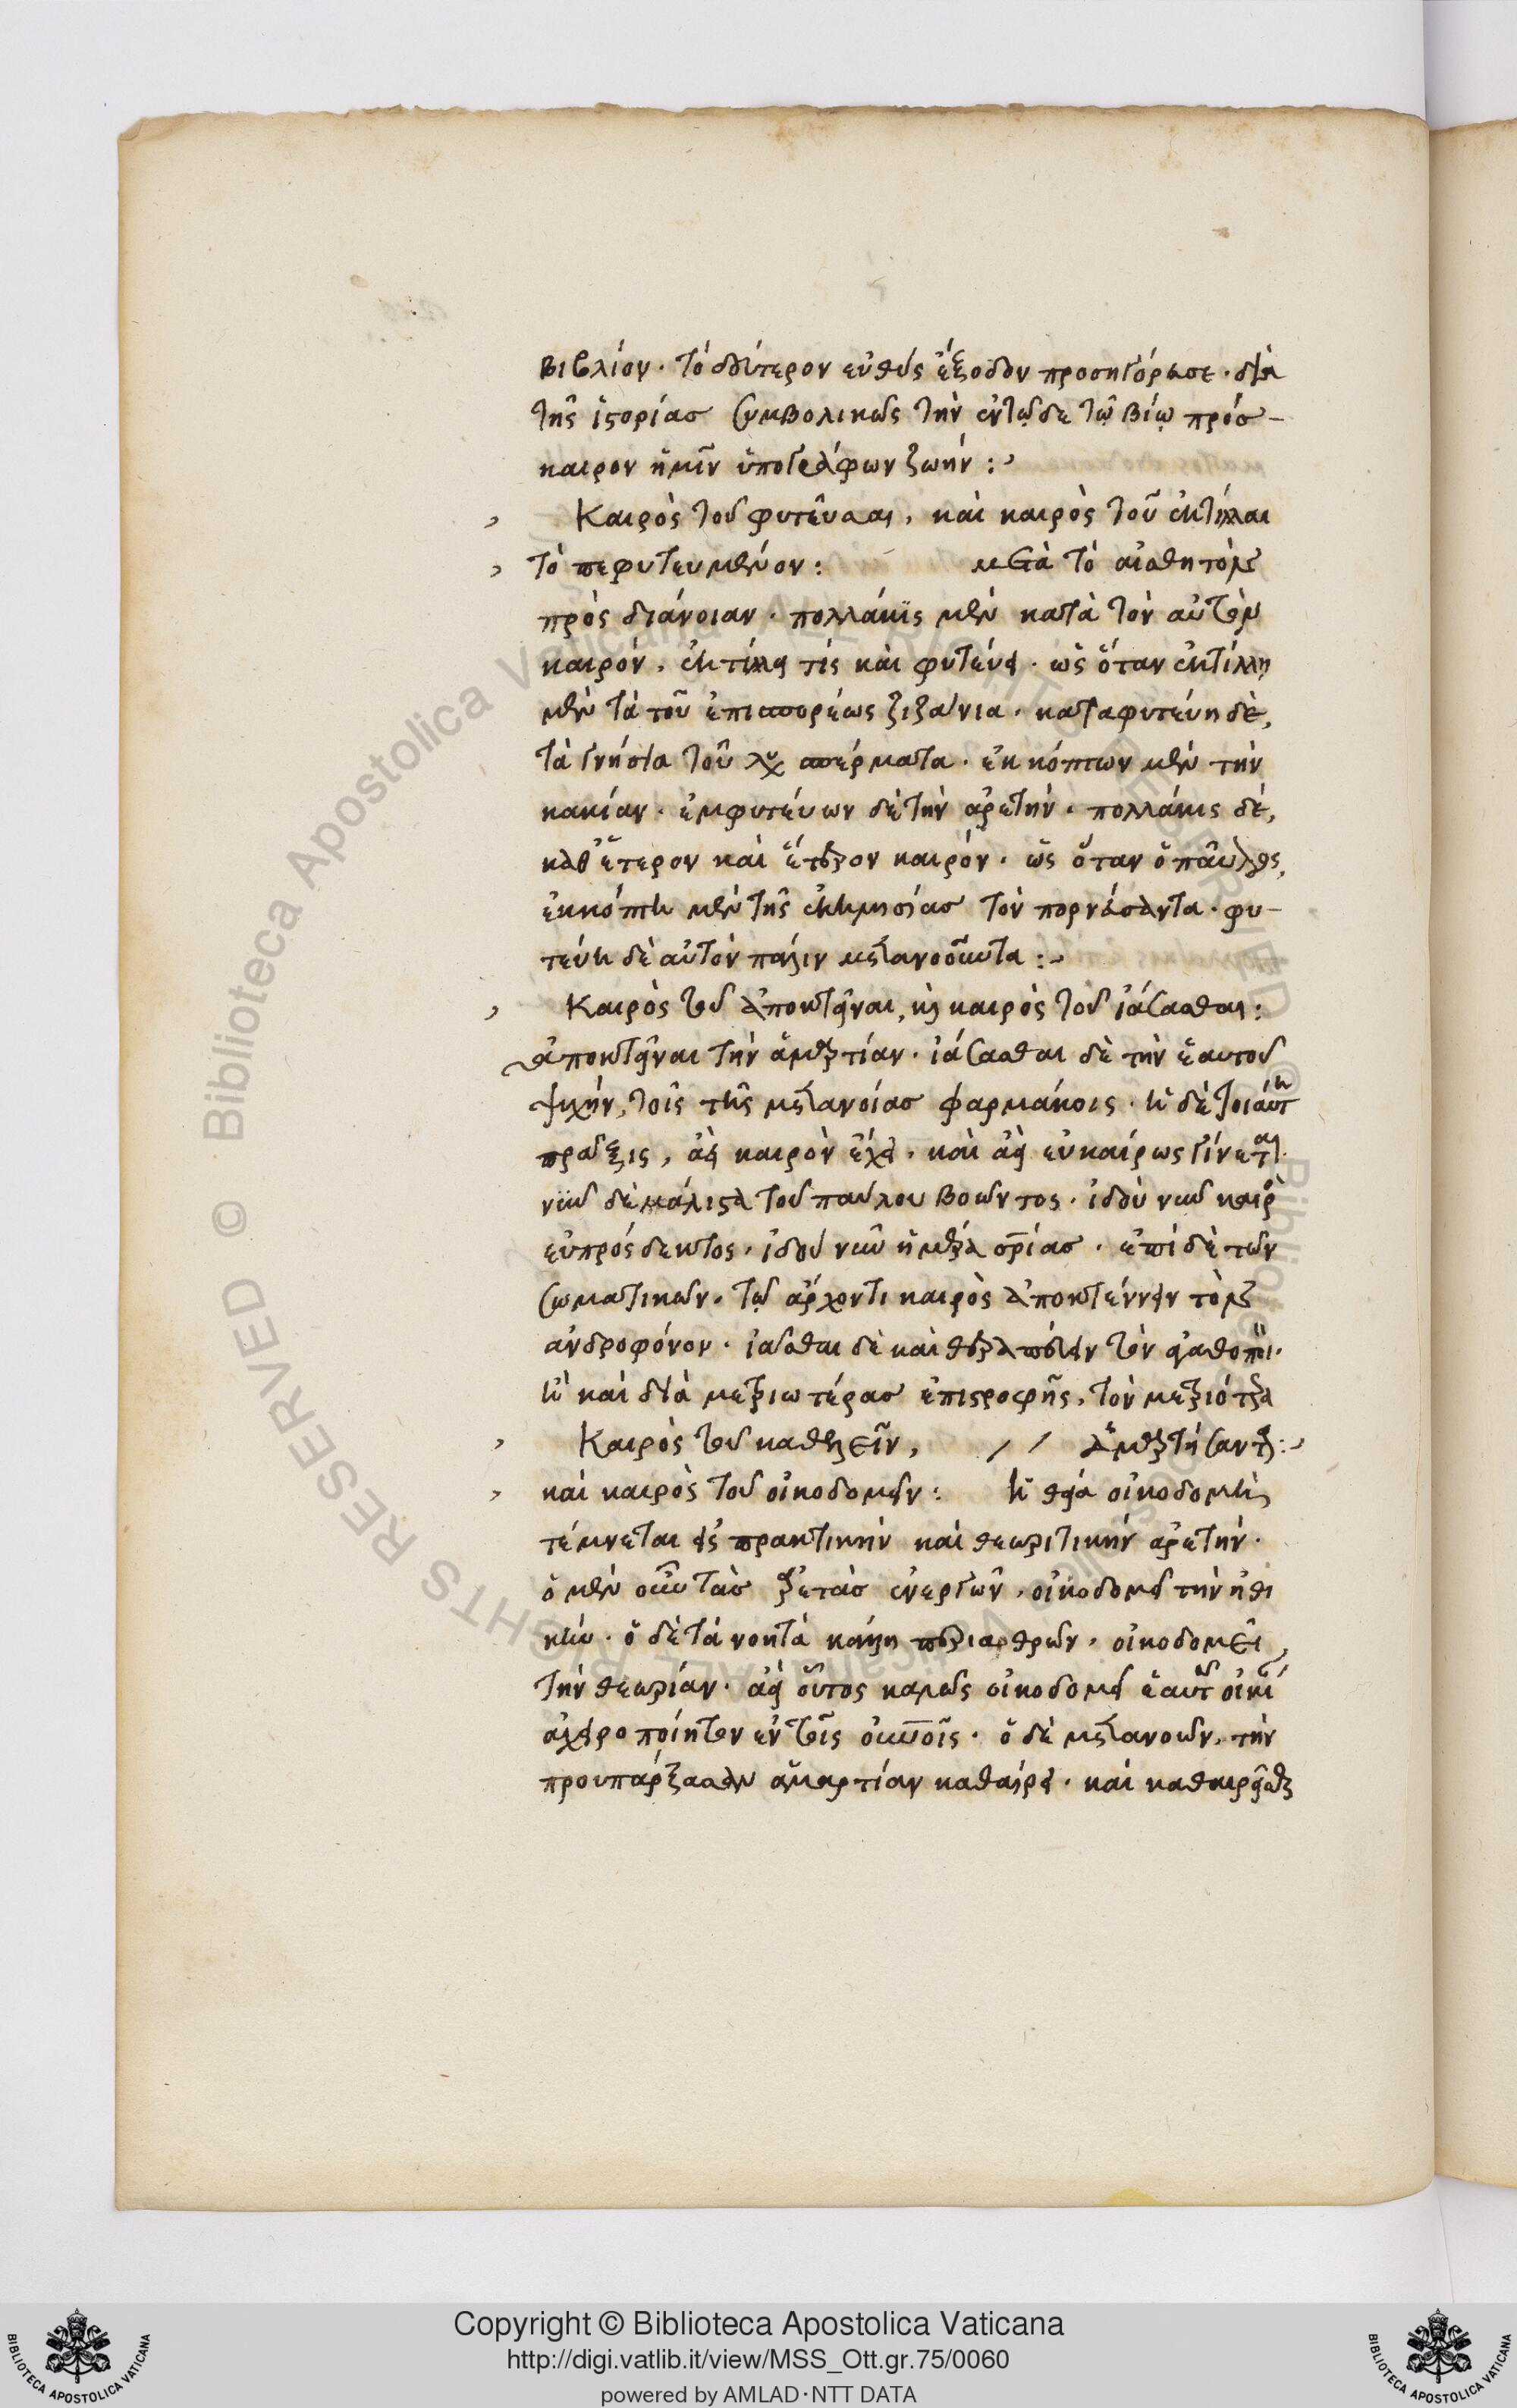 βιβλίον· τὸ δεύτερον εὐθὺς ἔξοδον προσηγόρευσε· διὰ
τῆς ἱστορίας συμβολικῶς τὴν ἐν τῷδε τῷ βίῳ πρόσ-
καιρον ἡμῖν ὑπογράφων ζωήν:
Καιρὸς τοῦ φυτεῦσαι, καὶ καιρὸς τοῦ ἐκτῖλαι
τὸ πεφυτευμένον: μετὰ τὸ αἰσθητὸν
πρὸς διάνοιαν· πολλάκις μὲν κατὰ τὸν αὐτὸν
καιρόν, ἐκτίλλει τίς καὶ φυτεύει· ὡς ὅταν ἐκτίλλῃ
μὲν τὰ τοῦ ἐπισπορέως ζιζάνια· καταφυτεύῃ δὲ,
τὰ γνήσια τοῦ σπέρματα· ἐκκόπτων μὲν τὴν
κακίαν· ἐμφυτεύων δὲ τὴν ἀρετήν· πολλάκις δὲ,
καθ' ἕτερον καὶ ἕτερον καιρόν· ὡς ὅταν ὁ παῦλος,
ἐκκόπτη μὲν τῆς ἐκκλησίας τὸν πορνεύσαντα· φυ-
τεύη δὲ αὐτὸν πάλιν μετανοοῦντα:
Καιρὸς τοῦ ἀποκτεῖναι, καὶ καιρὸς τοῦ ἰάσασθαι:
ἀποκτεῖναι τὴν ἁμαρτίαν· ἰάσασθαι δὲ τὴν ἑαυτοῦ
ψυχήν, τοῖς τῆς μετανοίας φαρμάκοις· ἡ δὲ τοιαύτη
πρᾶξις, ἀεὶ καιρὸν ἔχει, καὶ ἀεὶ εὐκαίρως γίνεται·
νῦν δὲ μάλιστα τοῦ παύλου βοῶντος· ἰδοὺ νῦν καιρὸς
εὐπρόσδεκτος, ἰδοὺ νῦν ἡμέρα σρίας· ἐπὶ δὲ τῶν
σωματικῶν, τῷ ἄρχοντι καιρὸς ἀποκτέννειν τὸν
ἀνδροφόνον· ἰᾶσθαι δὲ καὶ θεραπεύειν τὸν
καὶ διὰ μετριωτέρας ἐπιστροφῆς, τὸν μετριότερα
Καιρὸς τοῦ καθελεῖν, // ἁμαρτήσαντα:
καὶ καιρὸς τοῦ οἰκοδομεῖν: ἡ θεία οἰκοδομὴ
τέμνεται εἰς πρακτικὴν καὶ θεωρητικὴν ἀρετήν·
ὁ μὲν οὖν τὰς ἀρετὰς ἐνεργῶν, οἰκοδομεῖ τὴν ἠθι
κήν· ὁ δὲ τὰ νοητὰ κάλλη περιαθρῶν, οἰκοδομεῖ
τὴν θεωρίαν· ἀεὶ οὗτος καλῶς οἰκοδομεῖ ἑαυτῷ οἰκίαν
ἀχειροποίητον ἐν τοῖς οὐνοῖς· ὁ δὲ μετανοῶν, τὴν
προυπάρξασαν ἁμαρτίαν καθαίρει· καὶ